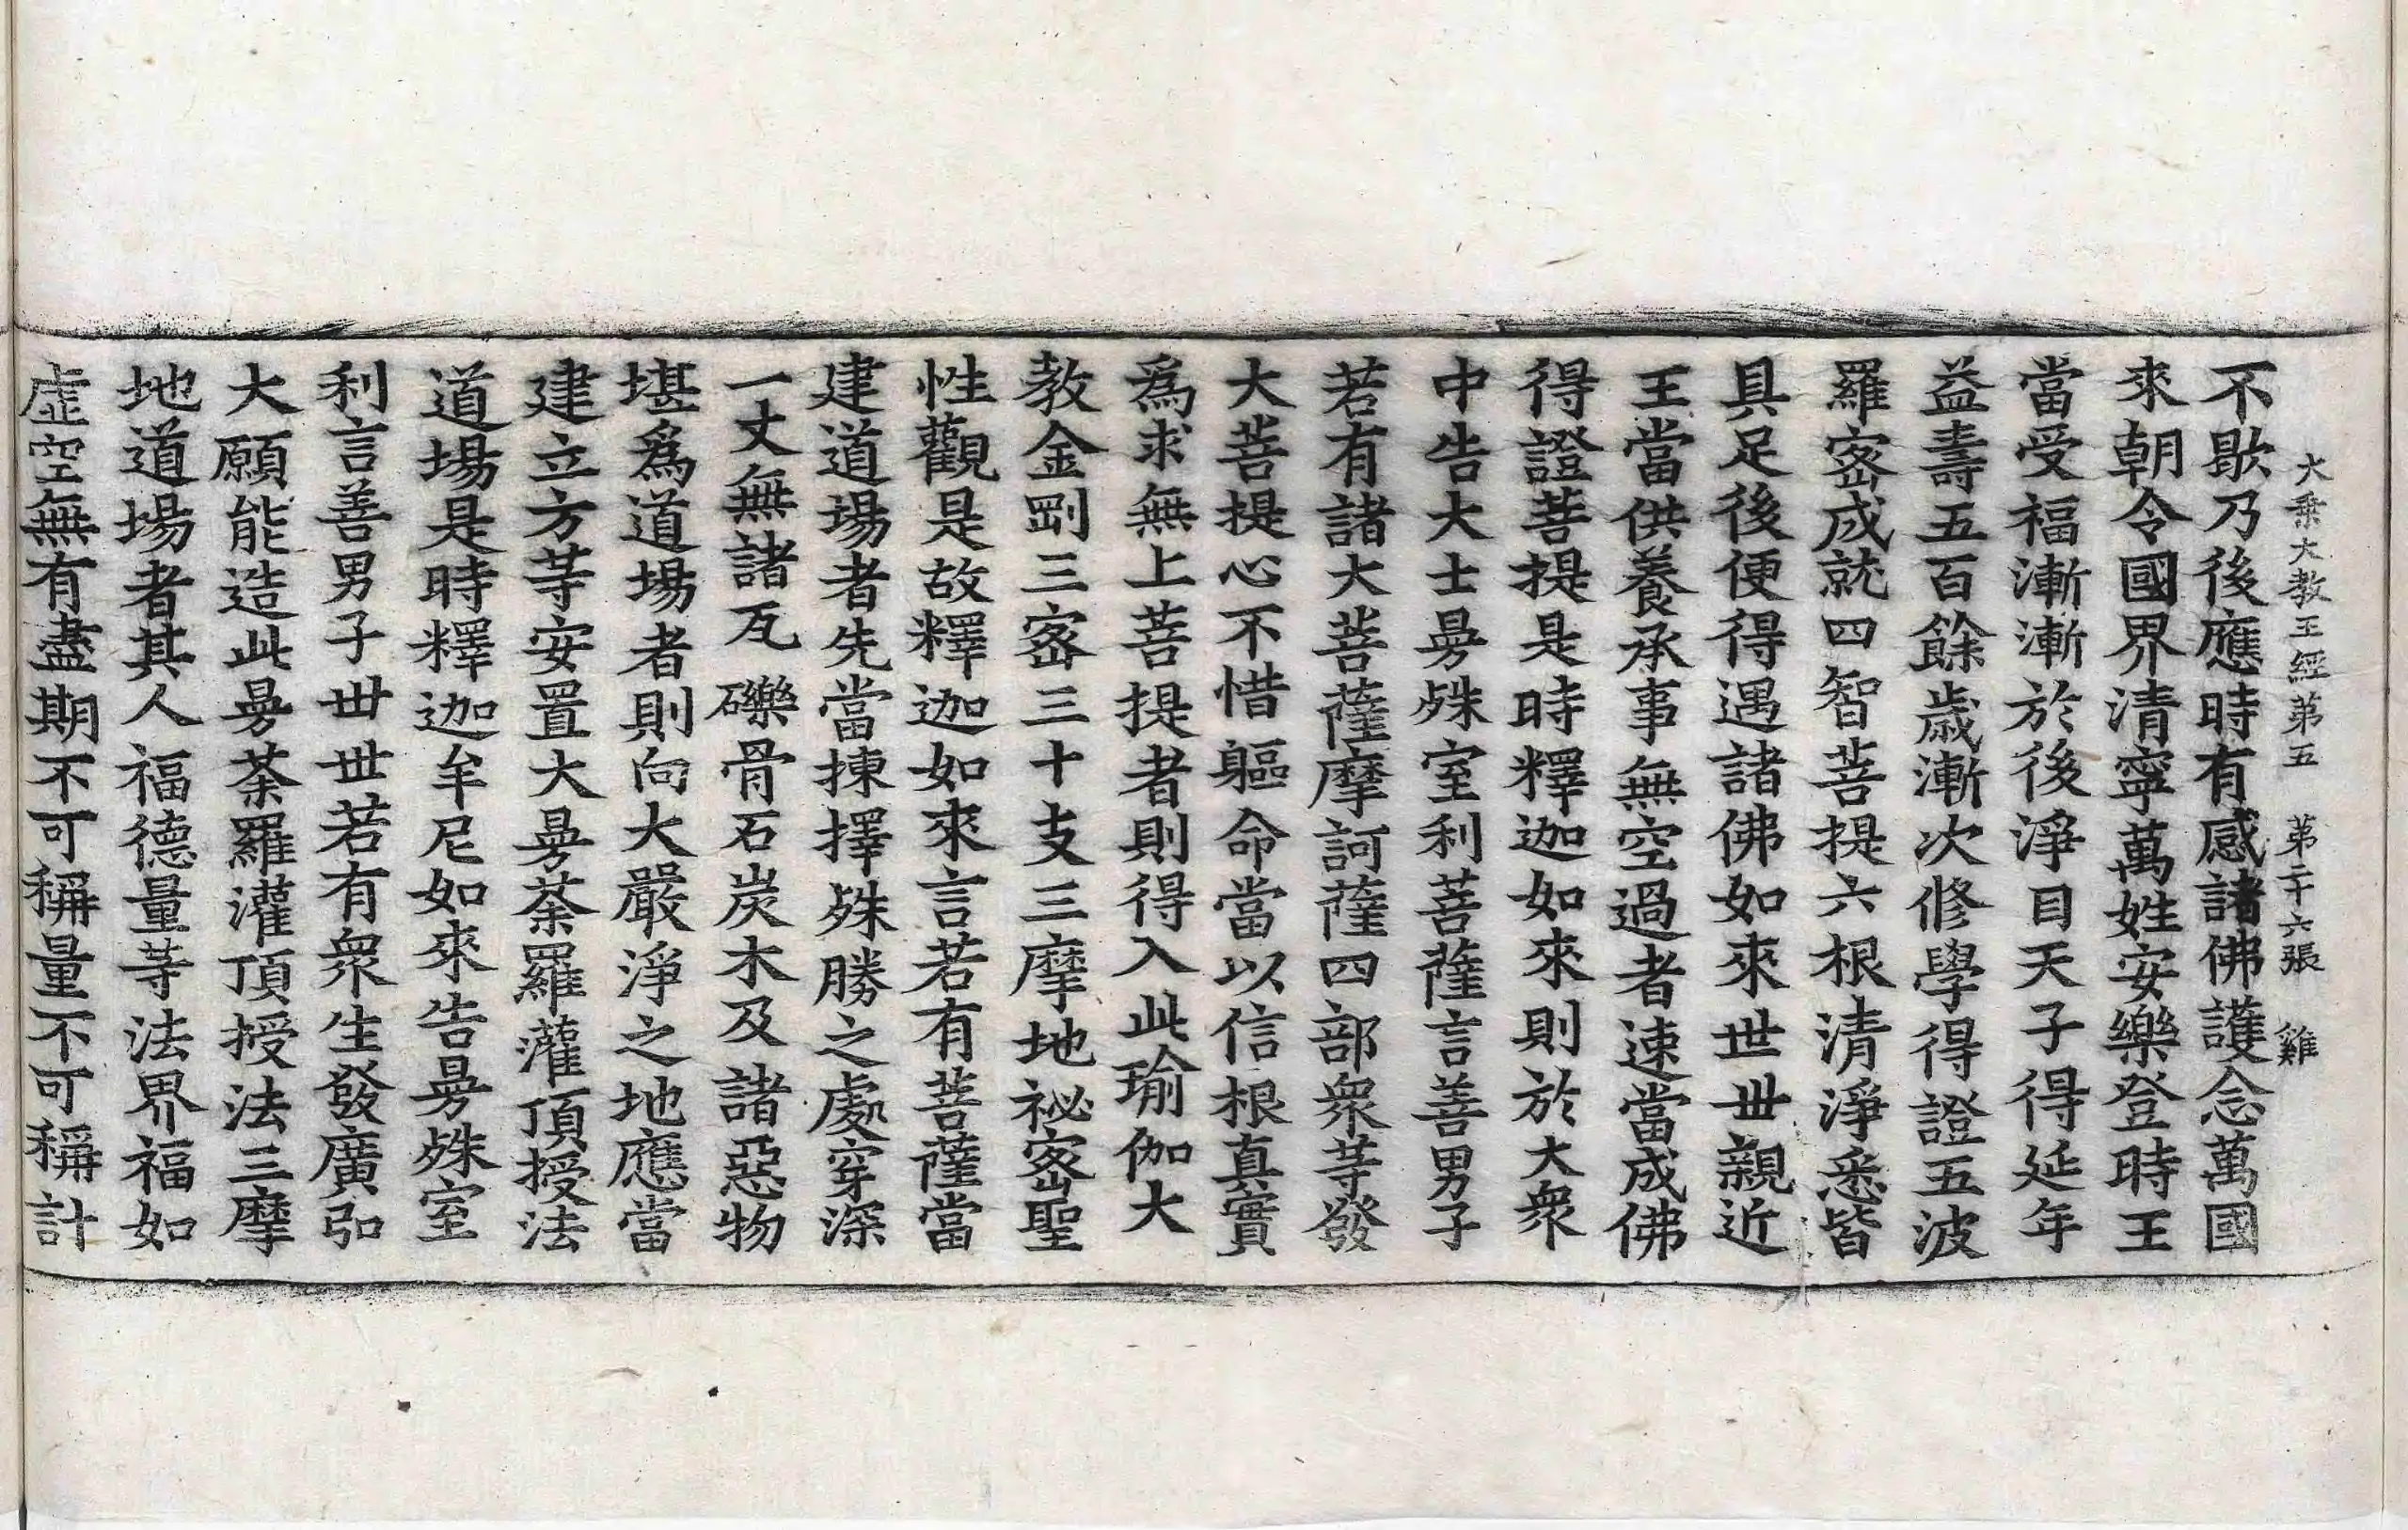 大乗大教王經第五　第二十六張　雞
不歇乃後應時有感諸佛護念萬國
來朝令國界清寧萬姓安樂登時王
當受福漸漸於後淨目天子得延年
益壽五百餘歲漸次修學得證五波
羅宻成就四智菩提六根清淨悉皆
具足後便得遇諸佛如來世世親近
王當供養承事無空過者速當成佛
得證菩提是時釋迦如來則於大衆
中告大士曼殊室利菩薩言善男子
若有諸大菩薩摩訶薩四部衆等發
大菩提心不惜軀命當以信根真實
爲求無上菩提者則得入此瑜伽大
教金剛三宻三十支三摩地祕宻聖
性觀是故釋迦如來言若有菩薩當
建道場者先當揀擇殊勝之處穿深
一丈無諸瓦礫骨石炭木及諸惡物
堪爲道場者則向大嚴淨之地應當
建立方等安置大曼荼羅灌頂授法
道場是時釋迦牟尼如來告曼殊室
利言善男子世世若有衆生發廣弘
大願能造此曼荼羅灌頂授法三摩
地道場者其人福德量等法界福如
虛空無有盡期不可稱量不可稱計